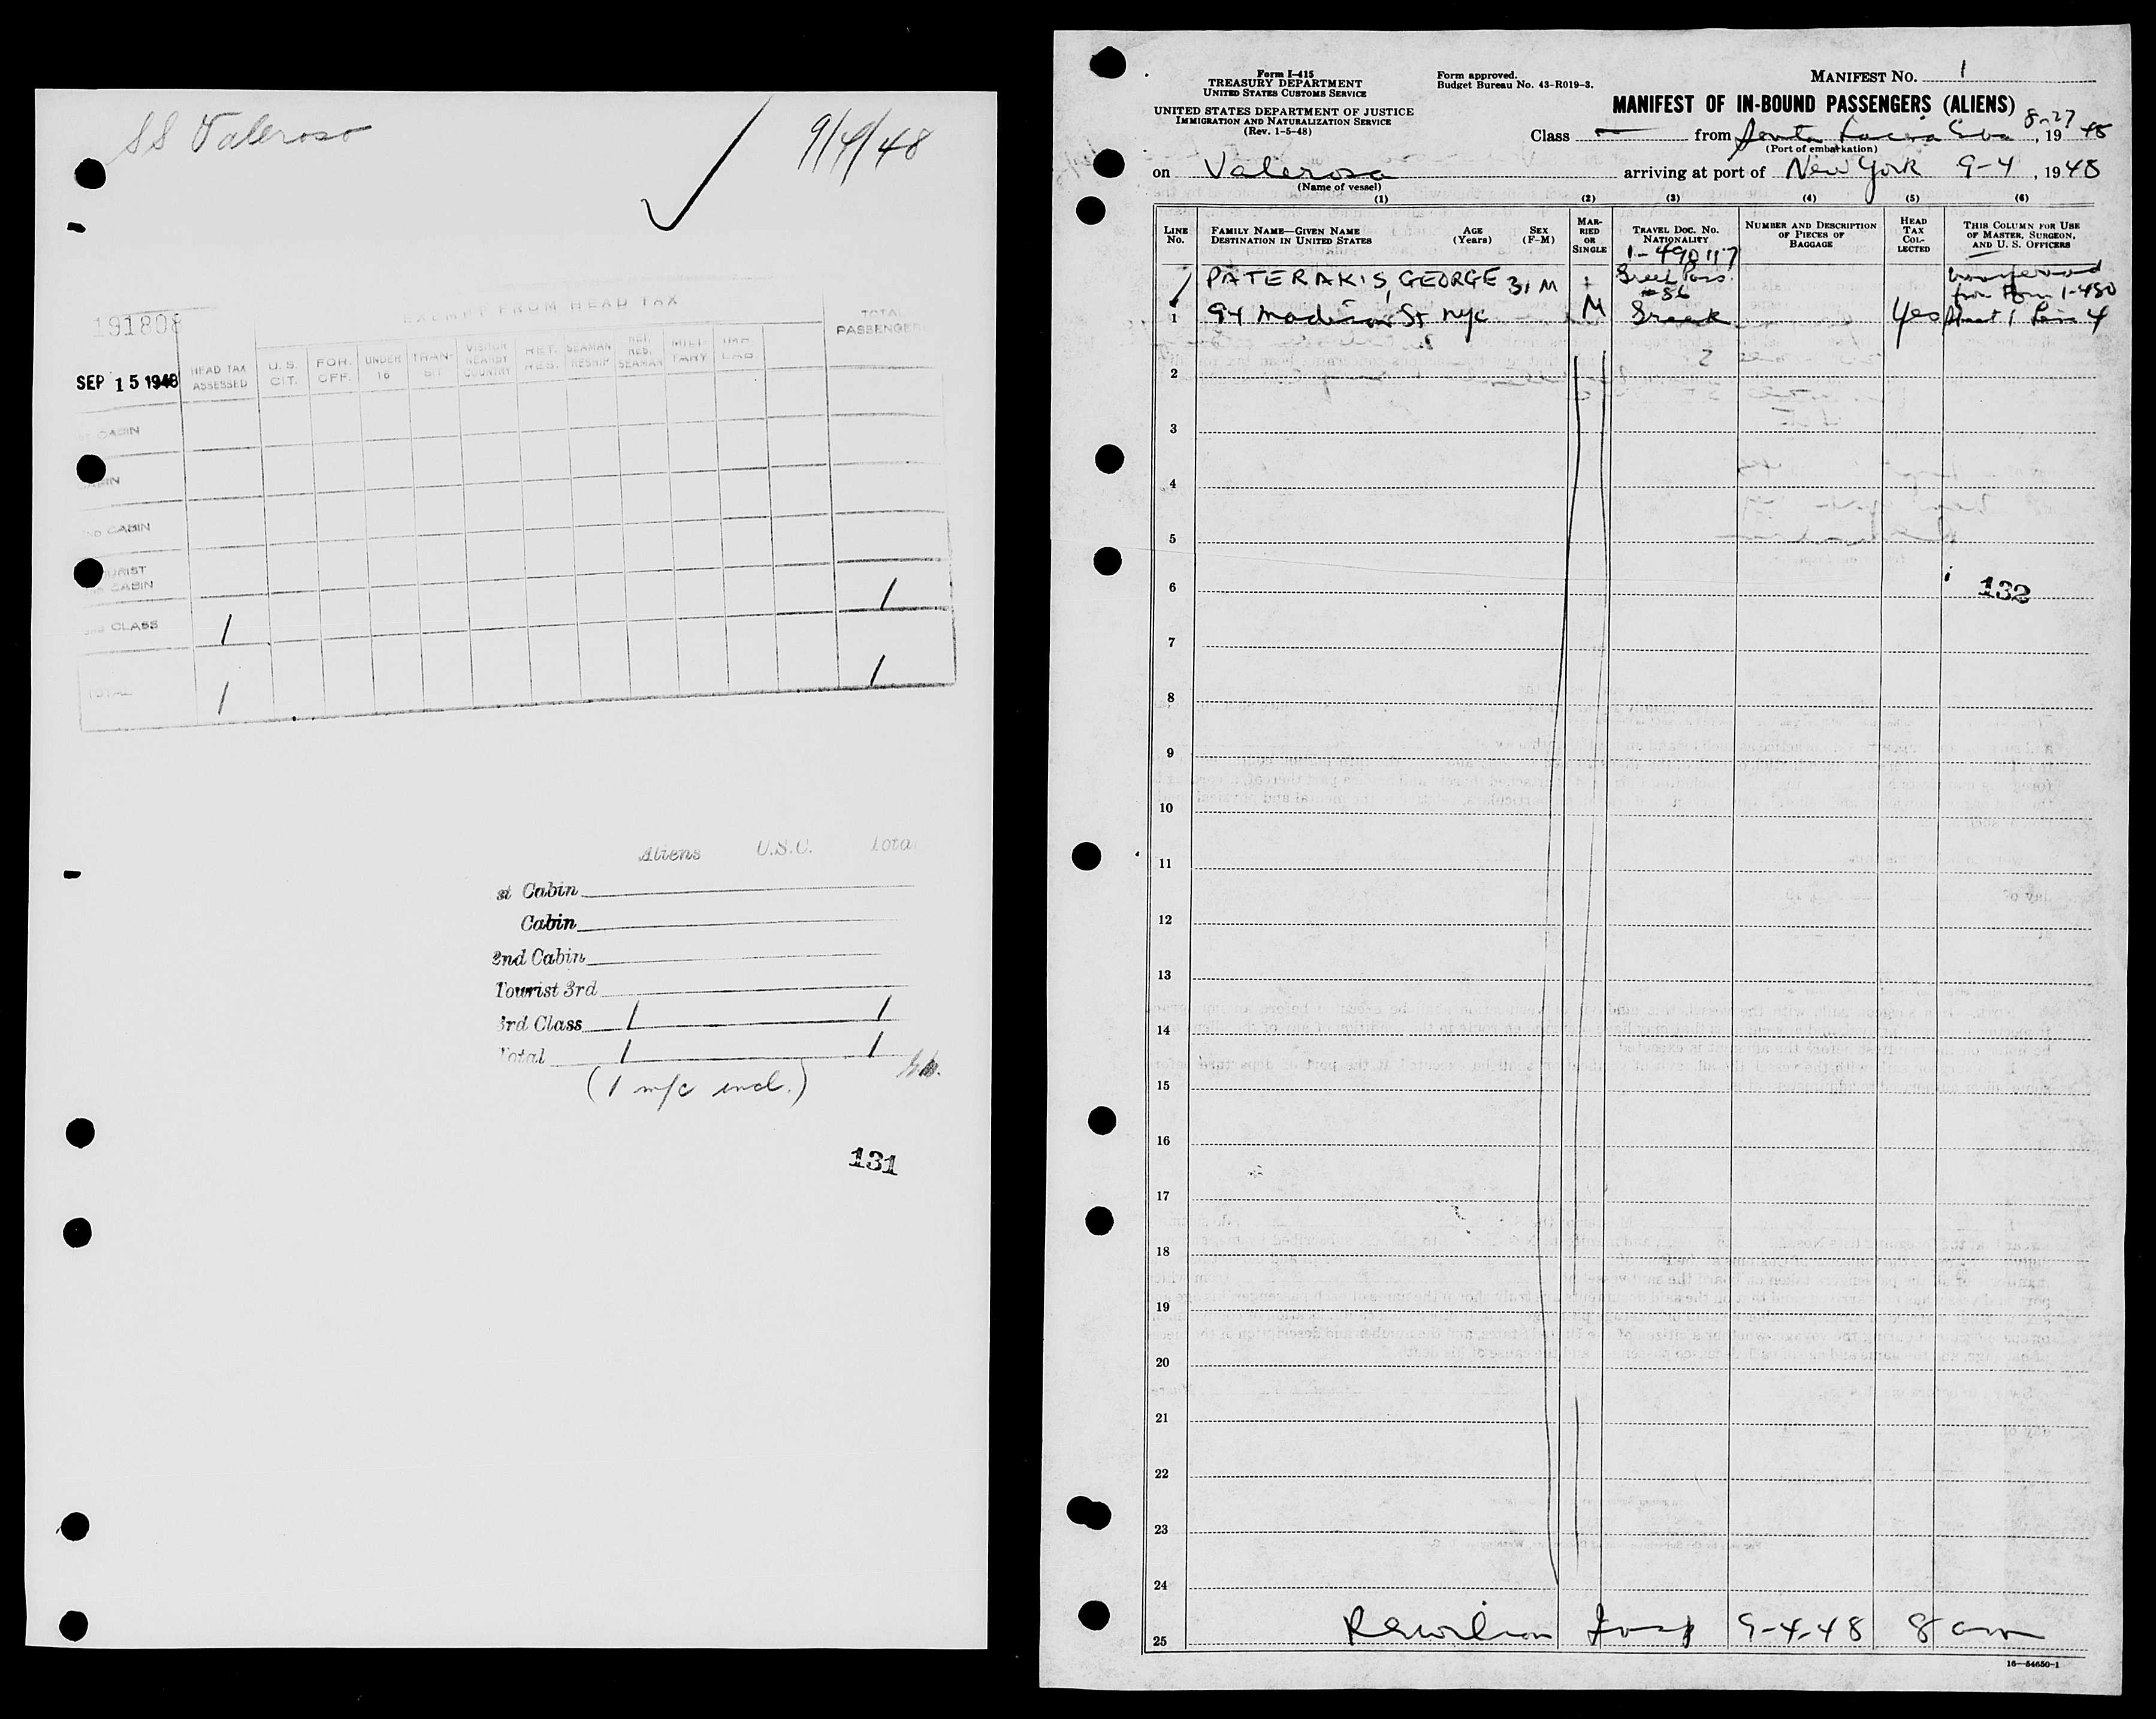 SS Valeroso
9/4/48
191808
SEP 15 1948
EXEMPT FROM HEAD TAX
HEAD TAX ASSESSED
U.S. CIT.
FOR. OFF.
UNDER 16
TRAN-SIT
VISITOR NEARBY COUNTRY
RET. RES.
SEAMAN RESHIP
RET. RES. SEAMAN
MILI-TARY
TOTAL PASSENGER
ST CABIN
CABIN
ND CABIN
TOURIST
3RD CABIN
1
3RD CLASS 1
TOTAL 1 1
Aliens U.S.C. Tota
st Cabin
Cabin
2nd Cabin
Tourist 3rd
3rd Class 1 1
Total 1 1
(1 m/c incl.)
131
Form I-415
TREASURY DEPARTMENT
UNITED STATES CUSTOMS SERVICE
UNITED STATES DEPARTMENT OF JUSTICE
IMMIGRATION AND NATURALIZATION SERVICE
(Rev. 1-5-48)
Form approved.
Budget Bureau No. 43-R019-3.
MANIFEST NO. 1
MANIFEST OF IN-BOUND PASSENGERS (ALIENS)
Class — from Santa Lucia Cuba 8-27, 1948
(Port of embarkation)
on Valerosa arriving at port of New York 9-4, 1948
(Name of vessel)
(1) (2) (3) (4) (5) (6)
LINE No.
FAMILY NAME—GIVEN NAME
DESTINATION IN UNITED STATES
AGE (Years)
SEX (F-M)
MAR-RIED OR SINGLE
TRAVEL DOC. No. NATIONALITY
NUMBER AND DESCRIPTION OF PIECES OF BAGGAGE
HEAD TAX COL-LECTED
THIS COLUMN FOR USE OF MASTER, SURGEON, AND U. S. OFFICERS
1-490117
PATERAKIS, GEORGE 31 M Greek Pass. transferred
#86 from Form 1-480
1 94 Madison St nyc M Greek Yes Sheet 1 Line 4
2
3
4
5
6
132
7
8
9
10
11
12
13
14
15
16
17
18
19
20
21
22
23
24
25 9-4-48 8 am
16—54650-1